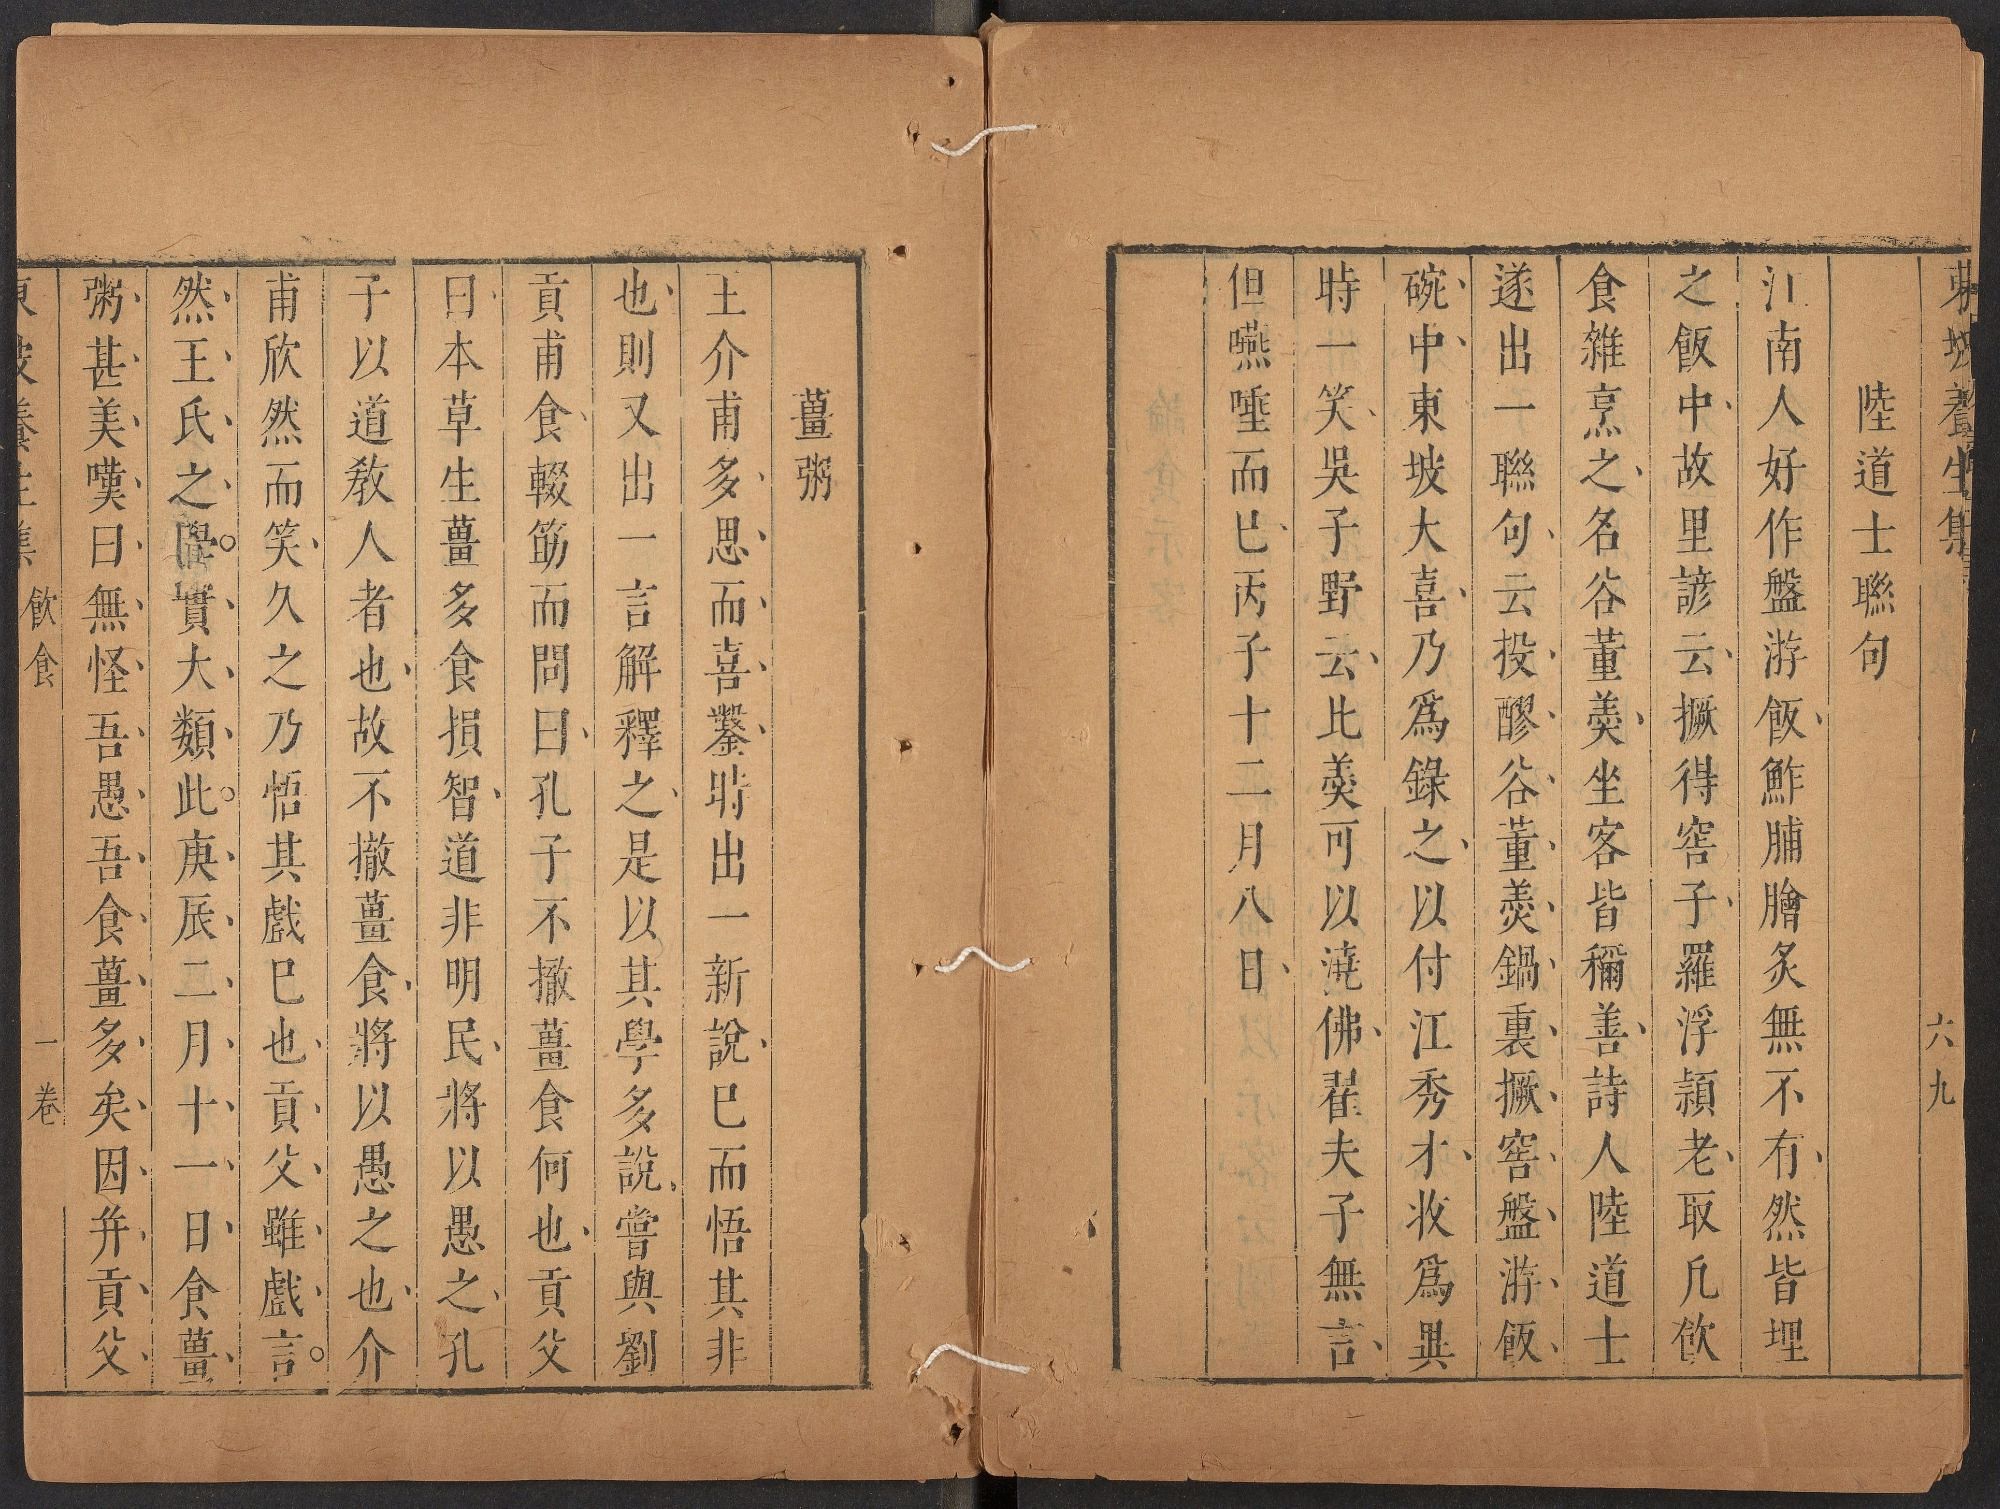 東坡養生集
六九
陸道士聯句
江南人好作盤游飯鮓脯膾炙無不有然皆埋
之飯中故里諺云撅得窖子羅浮頴老取凡飲
食雜烹之名谷董羹坐客皆稱善詩人陸道士
遂出一聯句云投醪谷董羹鍋裏撅窖盤游飯
碗中東坡大喜乃爲錄之以付江秀才收爲異
時一笑吳子野云此羹可以澆佛翟夫子無言
但嚥唾而已丙子十二月八日
薑粥
王介甫多思而喜鑿時出一新說已而悟其非
也則又出一言解釋之是以其學多說嘗與劉
貢甫食輟筯而問曰孔子不撤薑食何也貢父
曰本草生薑多食損智道非明民將以愚之孔
子以道敎人者也故不撤薑食將以愚之也介
甫欣然而笑久之乃悟其戲已也貢父雖戲言
然王氏之學實大類此庚辰二月十一日食薑
粥甚美嘆曰無怪吾愚吾食薑多矣因并貢父
東坡養生集 飲食 一卷